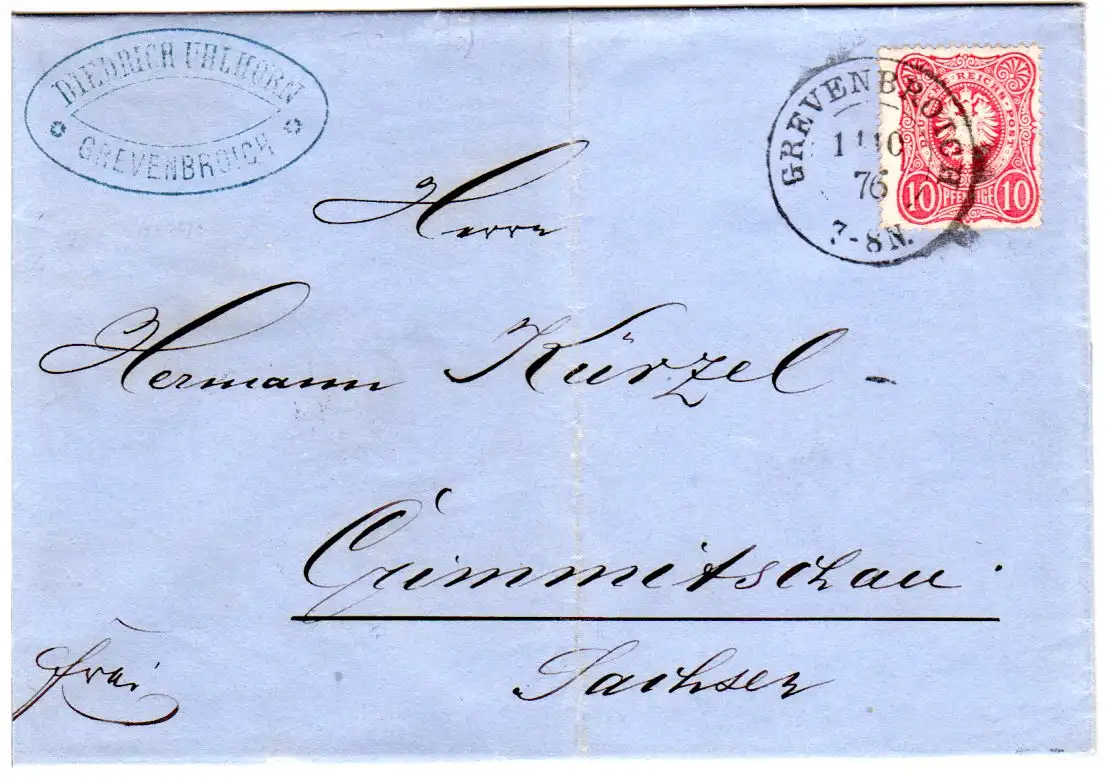 DIEDRICH UHLHORN
GREVENBROICH
GREVENBROICH
76
7-8N.
DEUTSCHE REICHS-POST
10 PFENNIGE 10
Herrn
Hermann Kürzel -
Crimmitschau.
Sachsen
frei